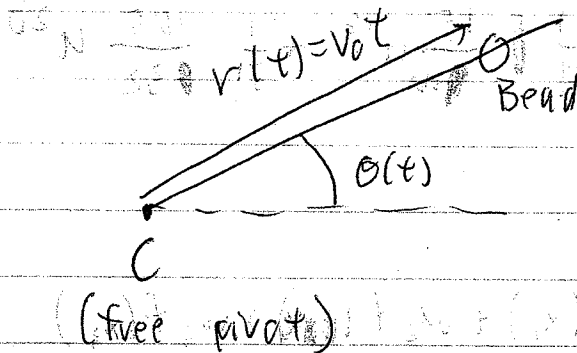 r(t)=v₀t
Bead
θ(t)
C
(free pivot)